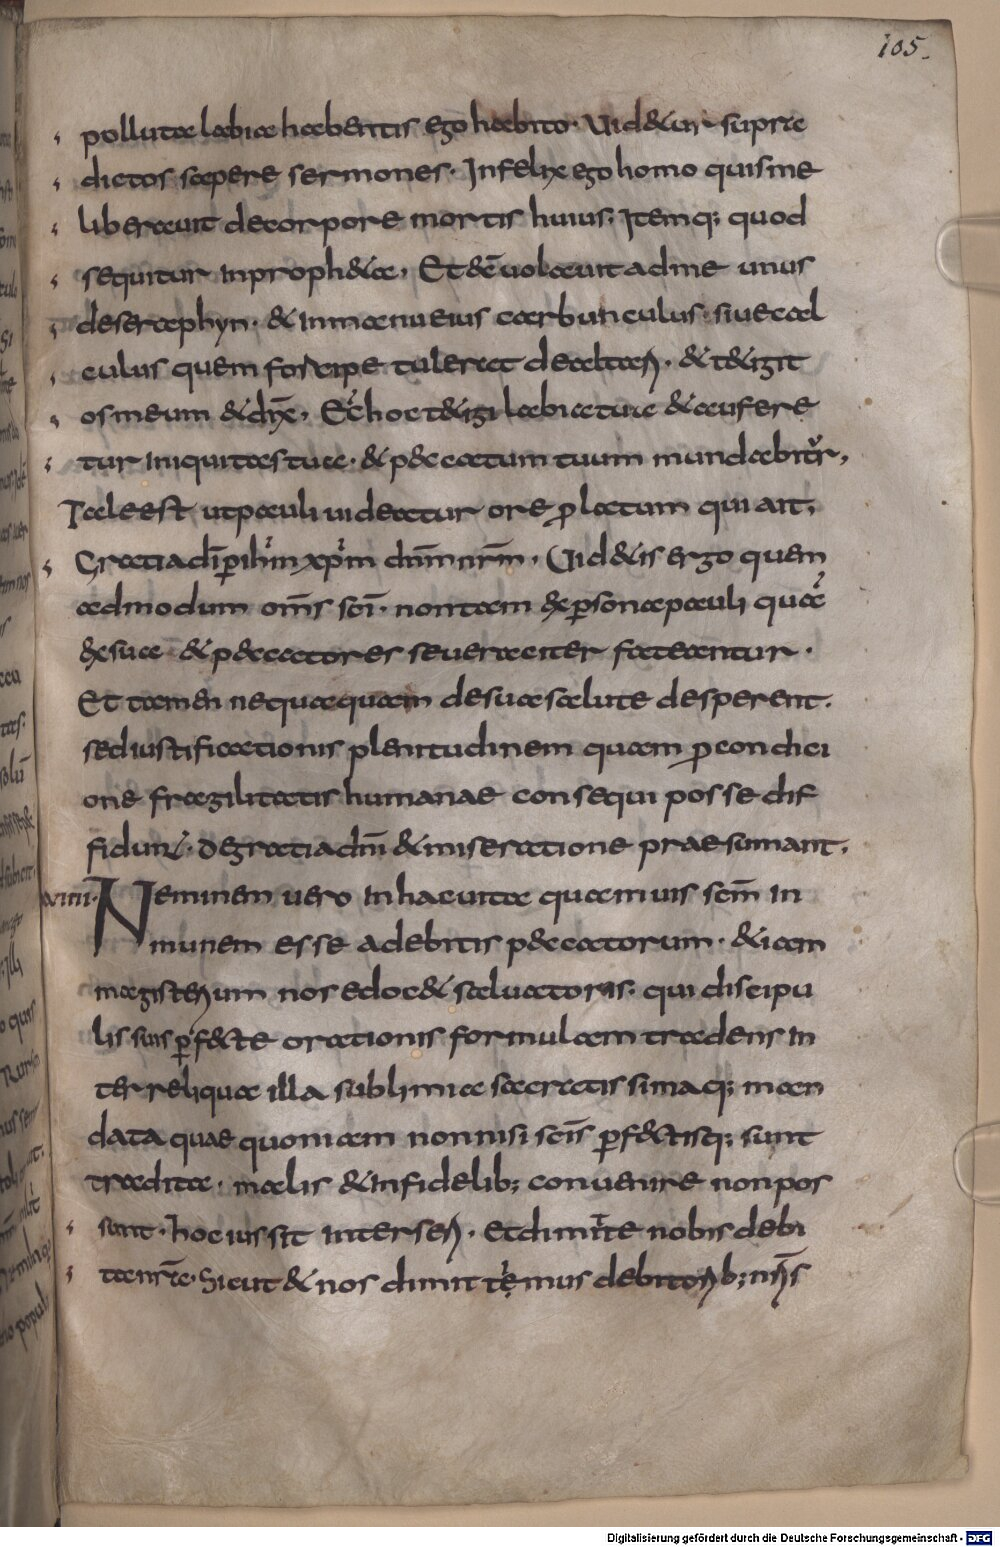 105.
polluta labia habentis ego habito. Uidetur supra
dictos sapere sermones. Infelix ego homo quis me
liberauit decorpore mortis huius; Itemq; quod
sequitur inpropheta. Et dē uolauit adme unus
deseraphyn. & inmanueius carbunculus. siuecal
culus quem forcipe tulerat dealtari. & tetigit
osmeum & dix̄. Ecce hoc tetigi labiatua & aufere
tur iniquitastua. & peccatum tuum mundabitur,
Tale est utpauli uideatur ore p̱latum qui ait,
Gratiadī ꝑ ihm̄ xpm̄ dn̄m nr̄m. Uidetis ergo quem
admodum om̄s scī. nontam exꝑsonapauli quā
exsua & peccatores seueraciter fateantur.
Et tamen nequaquam desuasalute desperent.
sediustificationis plenitudinem quam ꝑcondici
one fragilitatis humanae consequi posse dif
fidunt. degratiadn̄i & miseratione praesumant,
xuiiii. Neminem uero inhacuita quamuis scm̄ in
munem esse adebitis peccatorum. &iam
magisterium nos edocet saluatoris. qui discipu
lis suis ꝑfectae orationis formulam tradens in
ter reliqua illa sublimia sacratissimaq; man
data quae quoniam nonnisi scīs ꝑfectisq; sunt
tradita. malis & infidelib; conuenire nonpos
sunt. hoc iussit interseri. etdimitte nobis debi
tanrā. Sicut & nos dimittimus debitorib; nr̄is
Digitalisierung gefördert durch die Deutsche Forschungsgemeinschaft - DFG